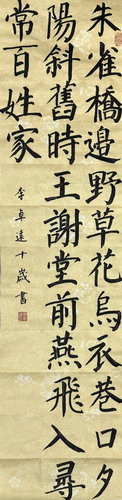 朱雀橋邊野草花烏衣巷口夕
陽斜舊時王謝堂前燕飛入尋
常百姓家
李卓達十歲書